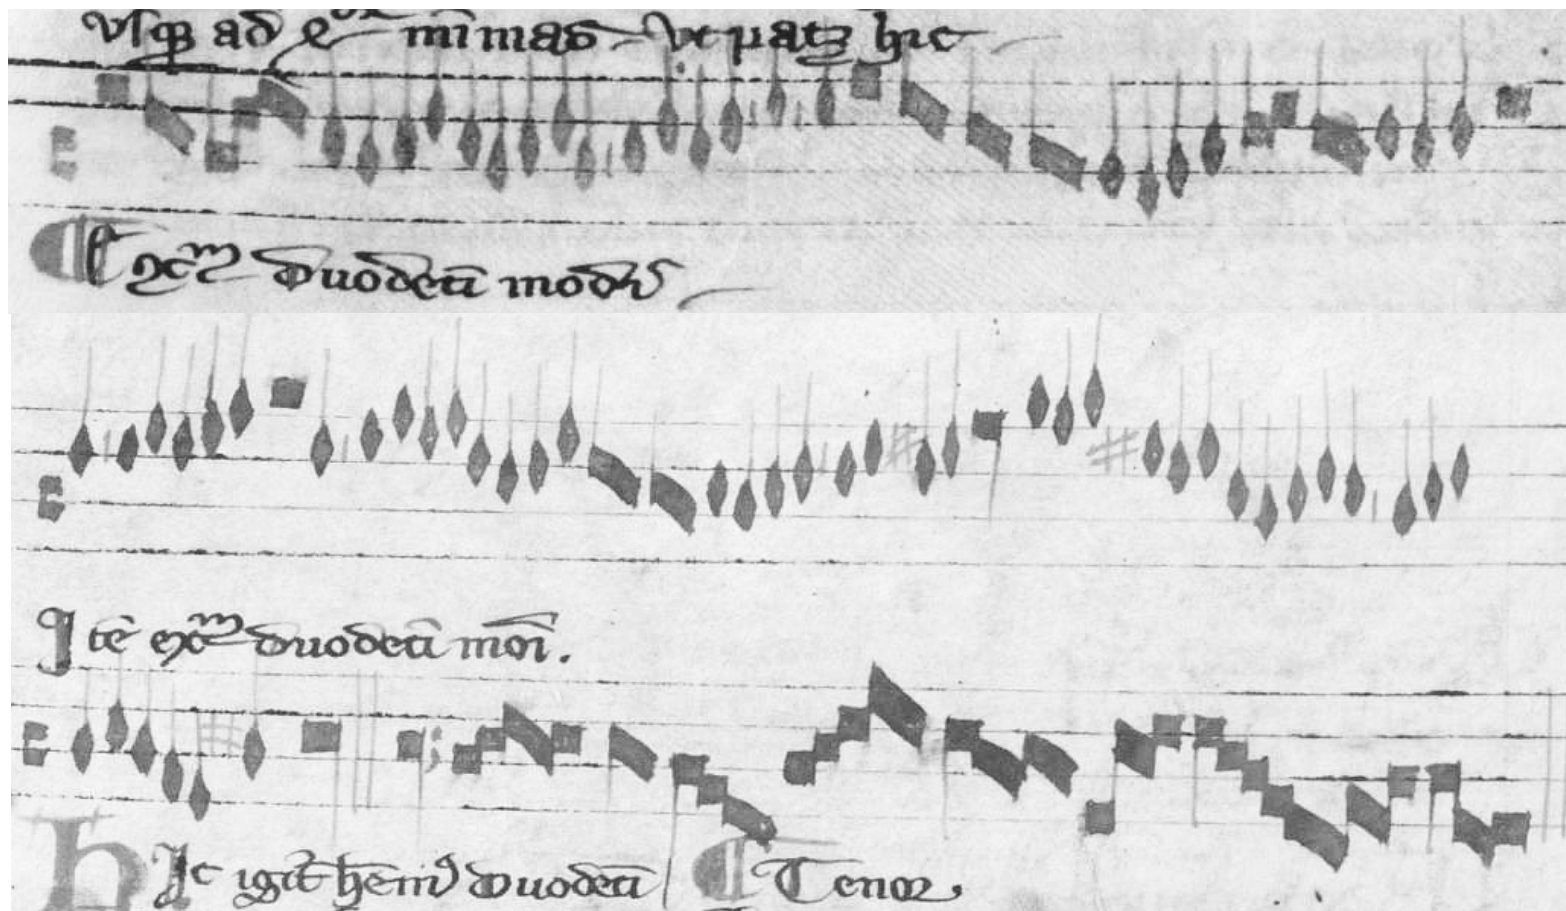 usqꝫ ad eoꝝ mīmas ut patꝫ hic
Exᵐ duodeci modi
Itē exᵐ duodeci moi.
Hic igit hēm⁹ duodeci ¶ Tenor.